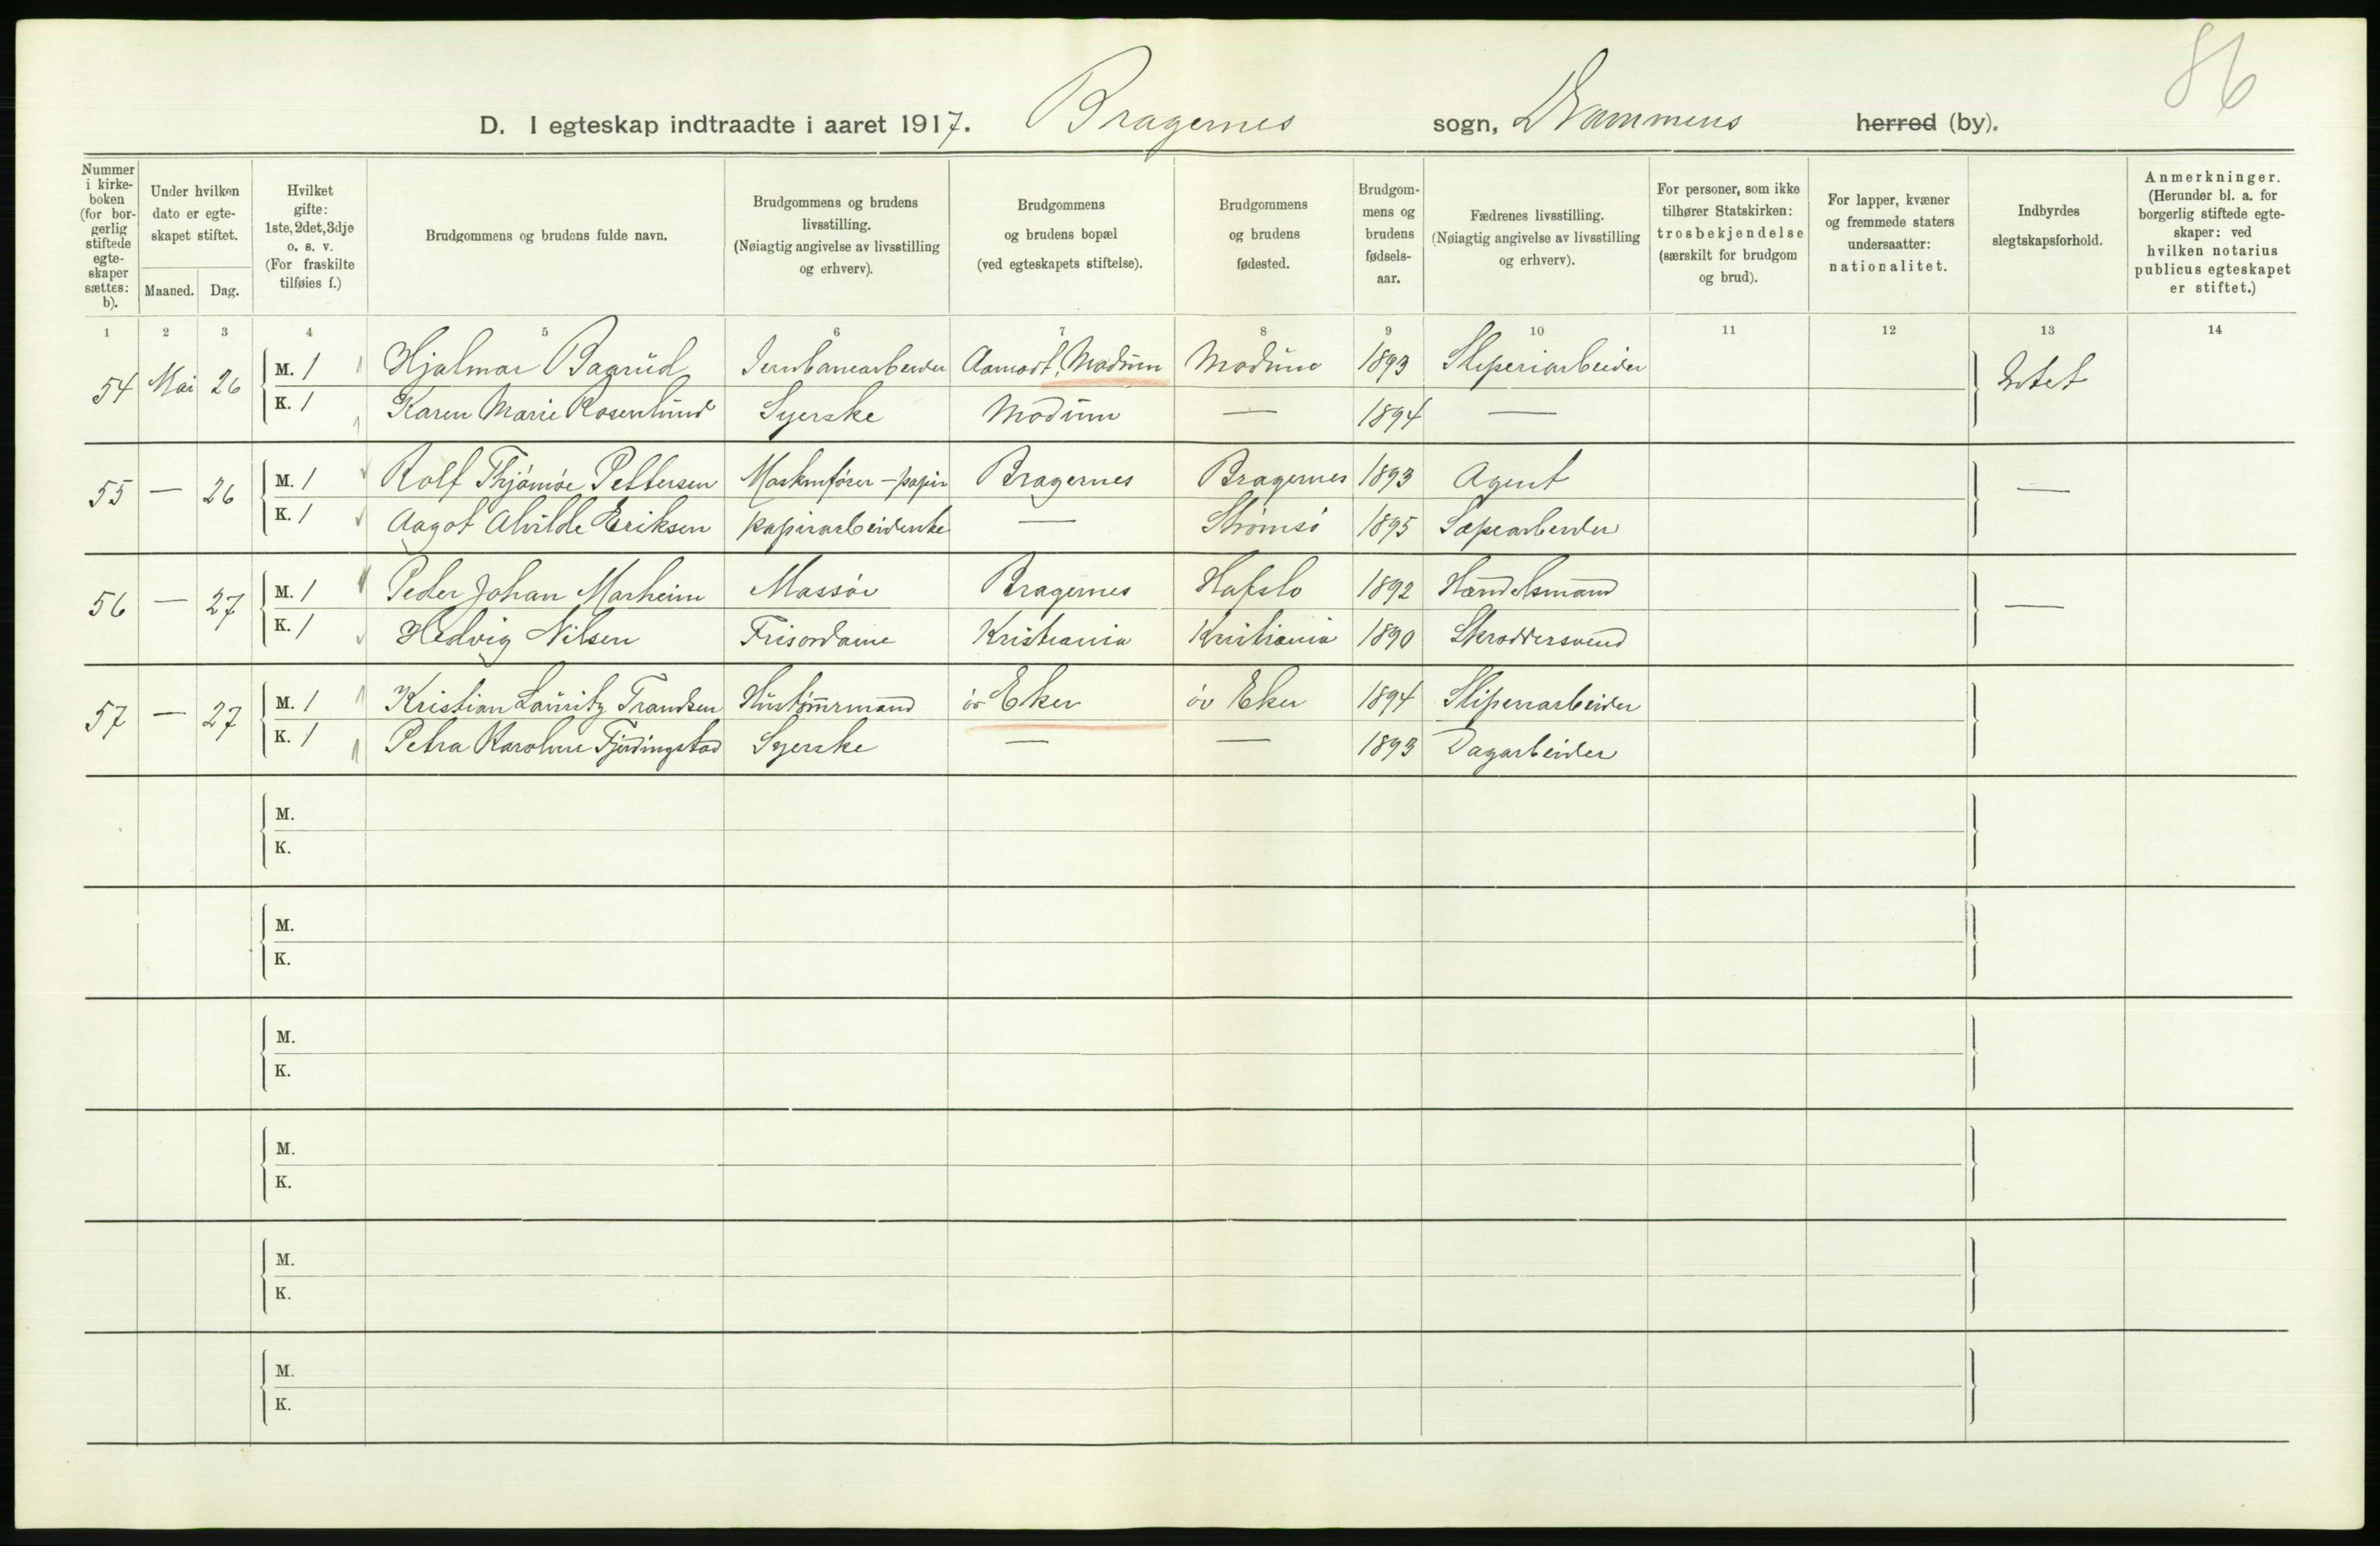 86
D. I egteskap indtraadte i aaret 1917. Bragernes sogn, Drammens herred (by).
Nummer i kirkeboken (for borgerlig stiftede egteskaper sættes: b).
Under hvilken dato er egteskapet stiftet.
Maaned. Dag.
Hvilket gifte: 1ste, 2det, 3dje o. s. v. (For fraskilte tilføies f.)
Brudgommens og brudens fulde navn.
Brudgommens og brudens livsstilling. (Nøiagtig angivelse av livsstilling og erhverv).
Brudgommens og brudens bopæl (ved egteskapets stiftelse).
Brudgommens og brudens fødested.
Brudgommens og brudens fødselsaar.
Fædrenes livsstilling. (Nøiagtig angivelse av livsstilling og erhverv).
For personer, som ikke tilhører Statskirken: trosbekjendelse (særskilt for brudgom og brud).
For lapper, kvæner og fremmede staters undersaatter: nationalitet.
Indbyrdes slegtskapsforhold.
Anmerkninger. (Herunder bl. a. for borgerlig stiftede egteskaper: ved hvilken notarius publicus egteskapet er stiftet.)
1 2 3 4 5 6 7 8 9 10 11 12 13 14
54 Mai 26 M. 1 Hjalmar Baarud Jernbanearbeider Aamodt, Modum Modum 1893 Sliperiarbeider Intet
K. 1 Karen Marie Rosenlund Syerske Modum — 1894 —
55 — 26 M. 1 Rolf Thjømøe Pettersen Maskinfører - papir Bragernes Bragernes 1893 Agent —
K. 1 Aagot Alvilde Eriksen papirarbeiderske — Strømsö 1895 Sæpearbeider
56 — 27 M. 1 Peder Johan Marheim Massör Bragernes Hafslo 1892 Handelsmand —
K. 1 Hedvig Nilsen Frisordame Kristiania Kristiania 1890 Skræddersvend
57 — 27 M. 1 Kristian Lauritz Trandsen Hustømrmand öv Eker öv Eker 1894 Sliperiarbeider
K. 1 Petra Karoline Fjerdingstad Syerske — — 1893 Dagarbeider
M.
K.
M.
K.
M.
K.
M.
K.
M.
K.
M.
K.